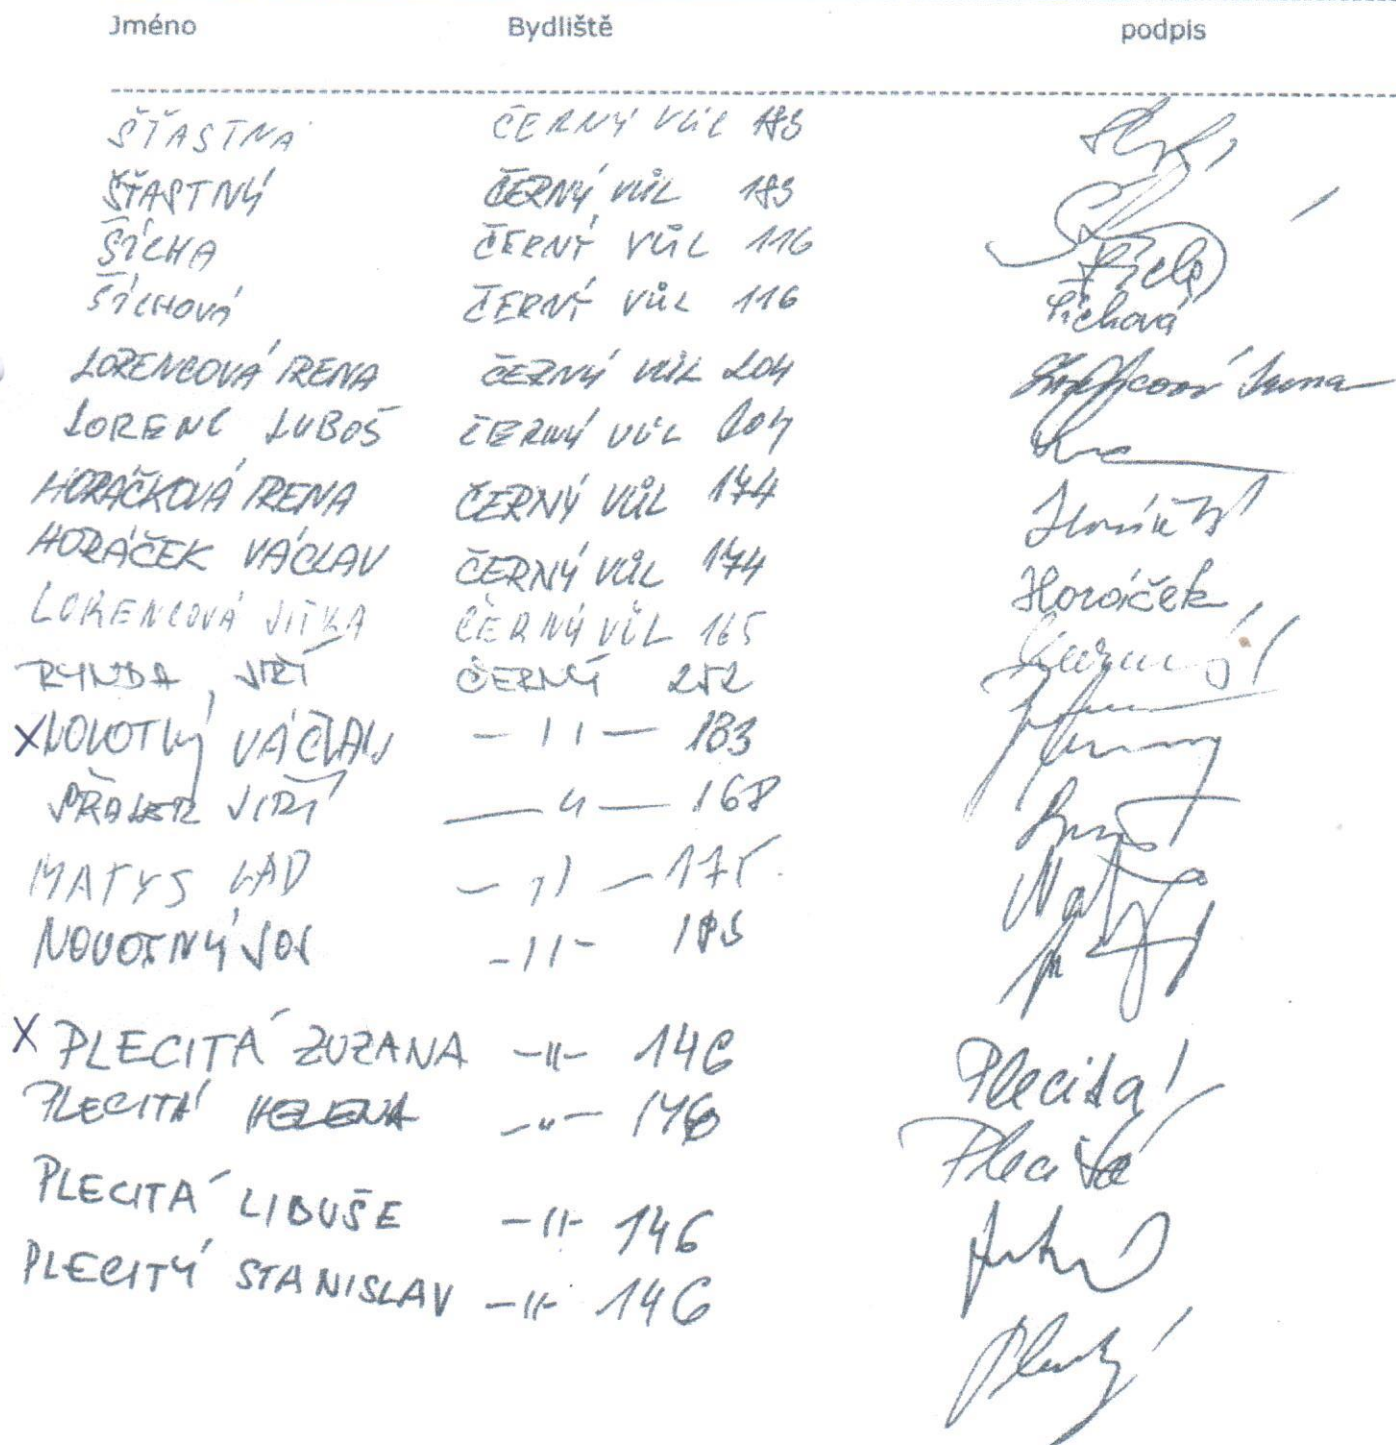 Jméno Bydliště podpis
ŠŤASTNA ČERNÝ VŮL 183
ŠŤASTNÝ ČERNÝ VŮL 183
ŠÍCHA ČERNÝ VŮL 116
ŠÍCHOVÁ ČERNÝ VŮL 116 Šíchová
LORENCOVÁ IRENA ČERNÝ VŮL 204
LORENC LUBOŠ ČERNÝ VŮL 204
HORÁČKOVÁ IRENA ČERNÝ VŮL 174
HORÁČEK VÁCLAV ČERNÝ VŮL 174 Horáček
LORENCOVÁ JITKA ČERNÝ VŮL 165
RYNDA JIŘÍ ČERNÝ 252
X NOVOTNÝ VÁCLAV -11- 183
JIŘÍ -"- 168
MATYS LAD -11- 175
NOVOTNÝ -11-
X PLECITÁ ZUZANA -11- 146 Plecitá
PLECITÁ HELENA -"- 146 Plecitá
PLECITÁ LIBUŠE -11- 146
PLECITÝ STANISLAV -11- 146